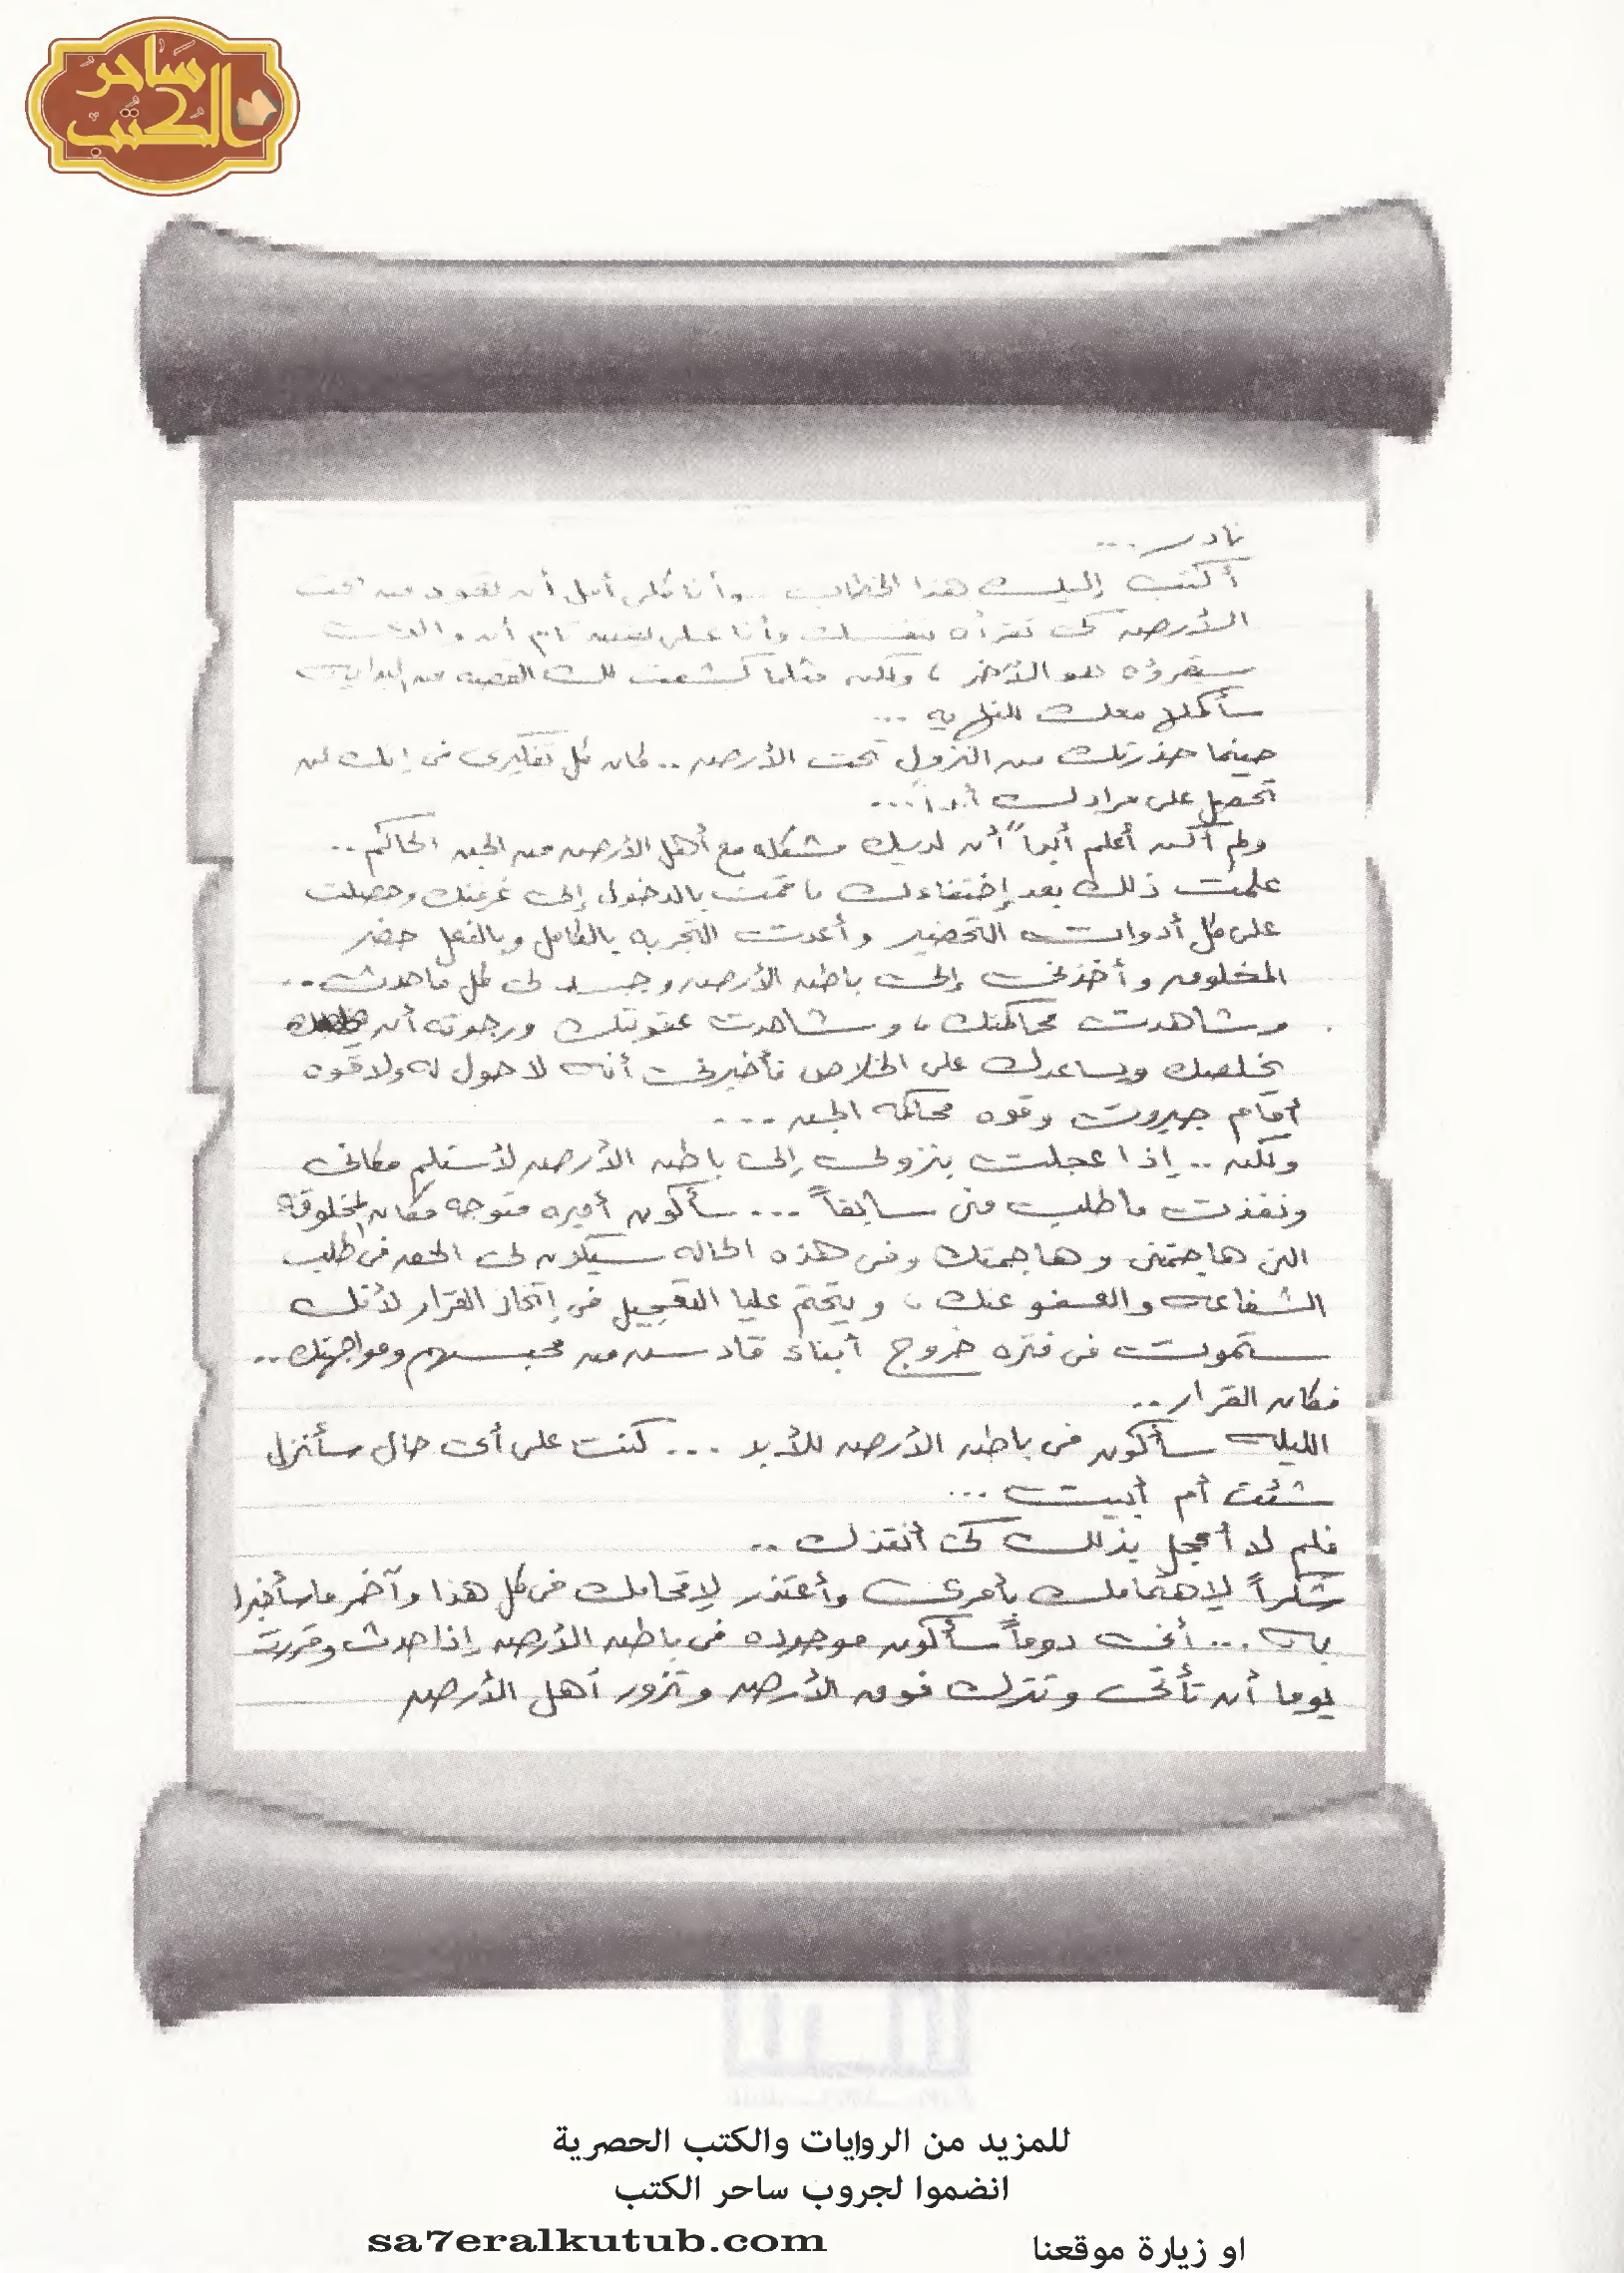 ساحر الكتب
نادر ...
أكتب إليك هذا الخطاب .. وأنا كلى أمل أن تعود من تحت
الأرض كى تقرأه بنفسك وأنا على يقين تام أن والدك
سيقرؤه هو الآخر ، ولكن مثلما كشفت لك القصه من البدايه
سأكمل معك للنهايه ...
حينما حذرتك من النزول تحت الأرض .. كان كل تفكيرى فى إنك لن
تحصل على مرادك أبداً ...
ولم أكن أعلم أبداً أن لديك مشكله مع أهل الأرض من الجن الحاكم ..
علمت ذلك بعد إختفاءك ما قمت بالدخول إلى غرفتك وحصلت
على كل أدوات التحضير وأعدت التجربه بالكامل وبالفعل حضر
المخلوق وأخذنى إلى باطن الأرض وجسد لى كل ما حدث ..
وشاهدت محاكمتك ، وشاهدت عقوبتك ورجوته أن
يخلصك ويساعدك على الخلاص فأخبرنى أنه لا حول له ولا قوه
أمام جبروت وقوه محاكمه الجن ...
ولكن .. إذا عجلت بنزولى إلى باطن الأرض لأستلم مكانى
ونفذت ما طلب منى سابقاً ... سأكون أميره متوجه مكان المخلوقه
التى هاجمتنى وهاجمتك وفى هذه الحاله سيكون لى الحق فى طلب
الشفاعه والعفو عنك ، ويتحتم عليا التعجيل فى إتخاذ القرار لأنك
ستموت فى فتره خروج أبناء قادسن من محبسهم ومواجهتك ..
فكان القرار ..
الليله سأكون فى باطن الأرض للأبد ... كنت على أى حال سأنزل
شئت أم أبيت ...
فلم لا أعجل بذلك كى أنقذك ..
شكراً لإهتمامك بأمرى وأعتذر لإقحامك فى كل هذا وآخر ما سأخبرك
به ... أنى دوماً سأكون موجوده فى باطن الأرض إذا حدث وقررت
يوما أن تأتى وتترك فوق الأرض وتزور أهل الأرض
للمزيد من الروايات والكتب الحصرية
انضموا لجروب ساحر الكتب
او زيارة موقعنا sa7eralkutub.com